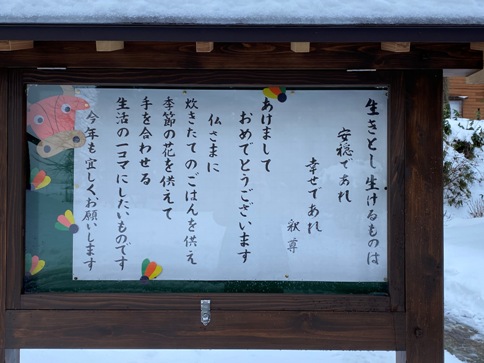 生きとし生けるものは
安穏であれ
幸せであれ
釈尊
あけまして
おめでとうございます
仏さまに
炊きたてのごはんを供え
季節の花を供えて
手を合わせる
生活の一コマにしたいものです
今年も宜しくお願いします